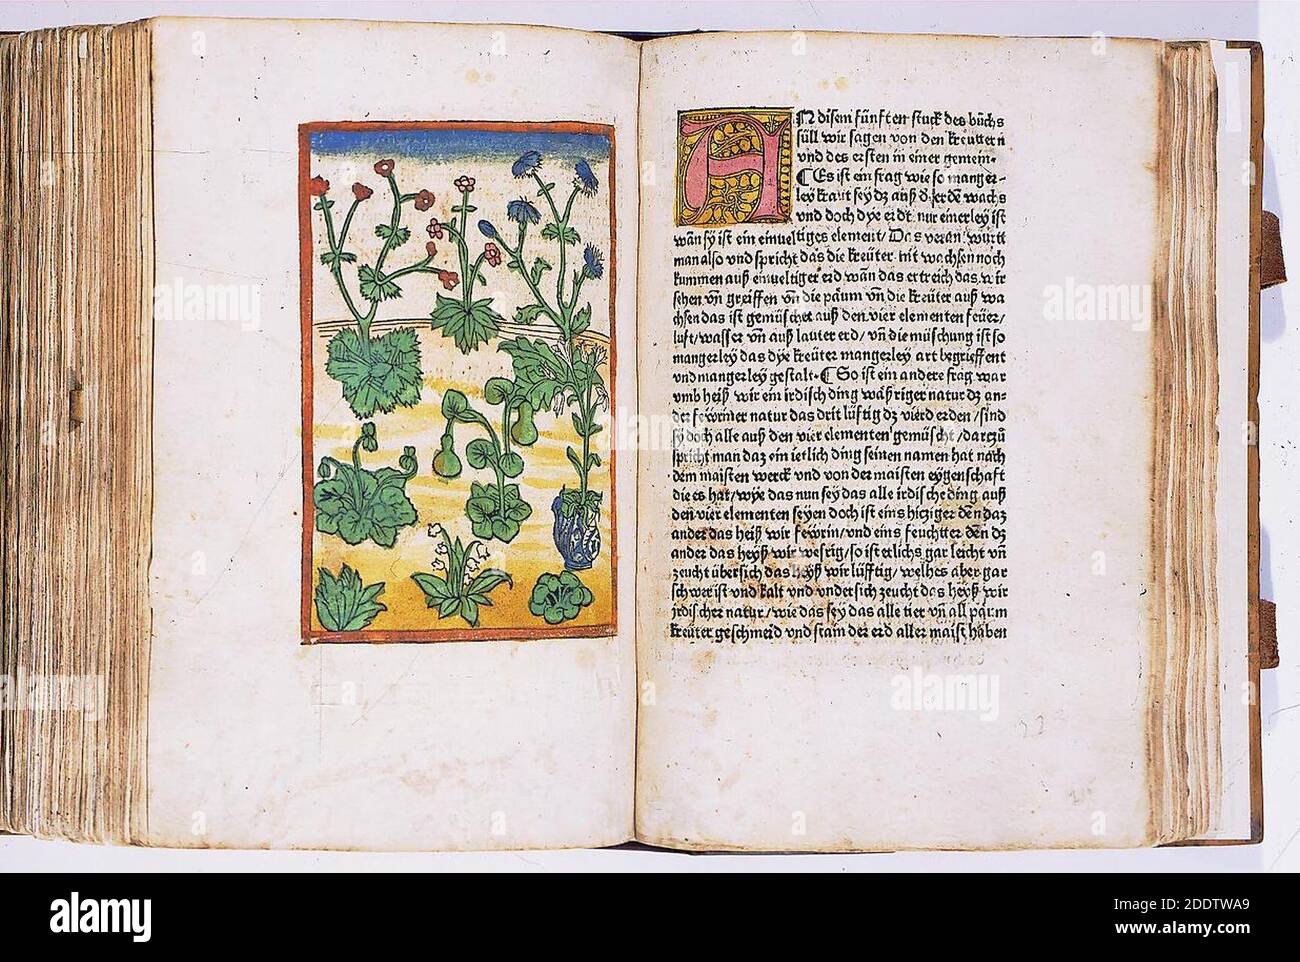 AN disem fünften stuck des bůchs
süll wir sagen von den kreüttern
vnd des ersten in einer gemein.
¶ Es ist ein frag wie so manger-
ley kraut sey dz auß d' erdē wachs
vnd doch dye erdt nur einerley ist
wān sy ist ein einueltiges element/ Das verantwurtt
man also vnd spricht das die kreüter nit wachsen noch
kummen auß einueltiger erd wān das ertreich das wir
sehen vn̄ greiffen vn̄ die påum vn̄ die kreüter auß wa
chsen das ist gemüschet auß den vier elementen feüer/
luft/wasser vn̄ auß lauter erd/ vn̄ die müschung ist so
mangerley das dye kreüter mangerley art begreiffent
vnd mangerley gestalt. ¶ So ist ein andere frag war
vmb heiß wir ein irdisch ding wåßriger natur dz an-
der fewriner natur das drit lüftig dz vierd erden/sind
sy doch alle auß den vier elementen gemüscht/darzů
spricht man daz ein ietlich ding seinen namen hat nach
dem maisten werck vnd von der maisten eygenschaft
die es hat/wye das nun sey das alle irdische ding auß
den vier elementen seyen doch ist eins hicziger den̄ daz
ander das heiß wir fewrin/vnd eins feuchtter den̄ dz
ander das heyß wir wesrig/so ist etlichs gar leicht vn̄
zeucht übersich das heyß wir lüfftig/welhes aber gar
schwer ist vnd kalt vnd vndersich zeucht das heyß wir
irdischer natur/wie das sey das alle tier vn̄ all påum
kreüter geschmeid vnd stain der erd aller maist håben
alamy
alamy
Image ID: 2DDTWA9
www.alamy.com